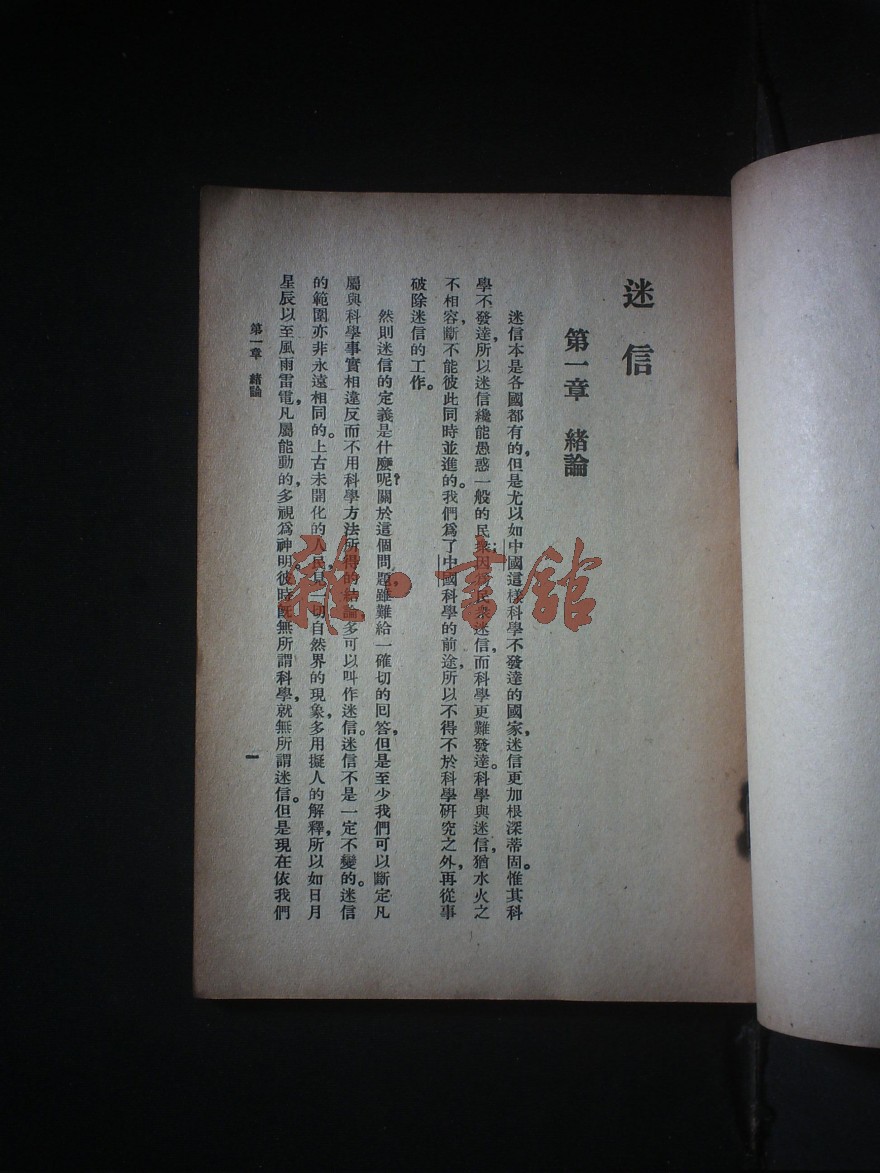 迷信
第一章 緒論
迷信本是各國都有的，但是尤以如中國這樣科學不發達的國家，迷信更加根深蒂固。惟其科
學不發達，所以迷信纔能愚惑一般的民衆；因爲民衆迷信，而科學更難發達。科學與迷信，猶水火之
不相容，斷不能彼此同時並進的。我們爲了中國科學的前途，所以不得不於科學研究之外，再從事
破除迷信的工作。
然則迷信的定義是什麼呢？關於這個問題，雖難給一確切的回答，但是至少我們可以斷定凡
屬與科學事實相違反而不用科學方法所得的結論，多可以叫作迷信。迷信不是一定不變的。迷信
的範圍亦非永遠相同的。上古未開化的人民，見一切自然界的現象，多用擬人的解釋，所以如日月
星辰以至風雨雷電，凡屬能動的，多視爲神明。彼時既無所謂科學，就無所謂迷信。但是現在依我們
第一章 緒論
一
雜·書館